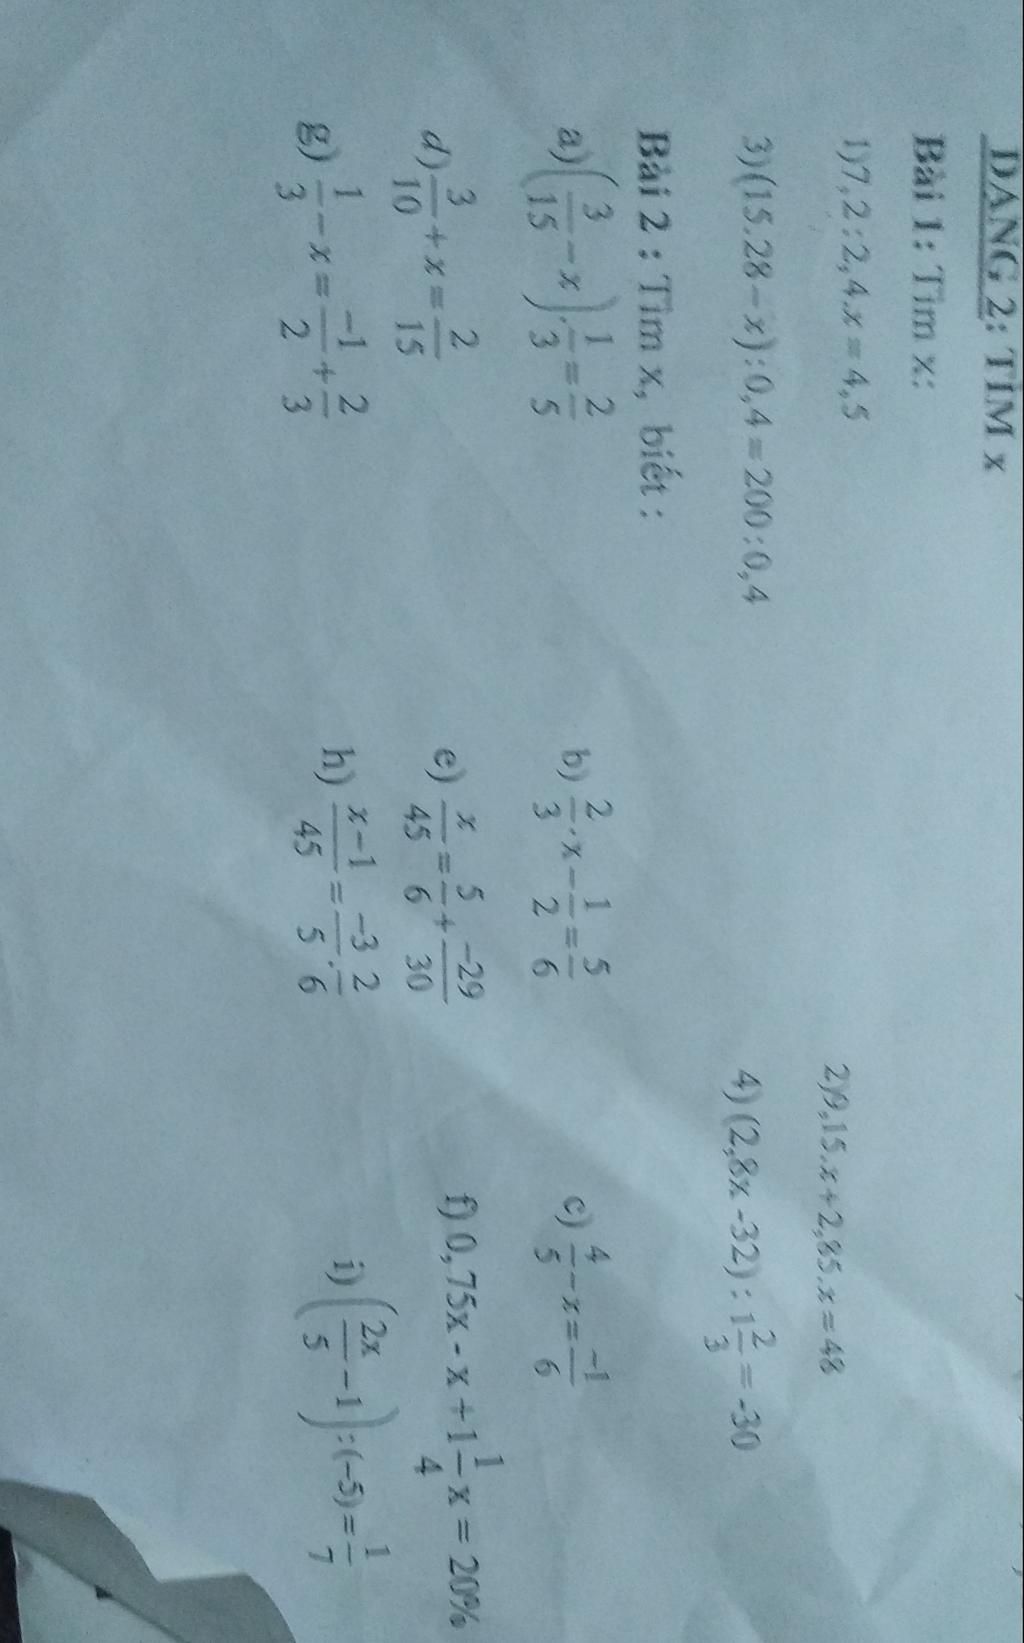 DẠNG 2: TÌM x
Bài 1: Tìm x:
1)7,2:2,4.x = 4,5 2)9,15.x+2,85.x=48
3)(15.28-x):0,4=200:0,4 4) (2,8x -32) : 1 2/3 = -30
Bài 2 : Tìm x, biết :
a) (3/15 - x).1/3 = 2/5 b) 2/3.x - 1/2 = 5/6 c) 4/5 - x = -1/6
d) 3/10 + x = 2/15 e) x/45 = 5/6 + -29/30 f) 0,75x - x + 1 1/4 x = 20%
g) 1/3 - x = -1/2 + 2/3 h) x-1/45 = -3/5 . 2/6 i) (2x/5 - 1):(-5) = 1/7